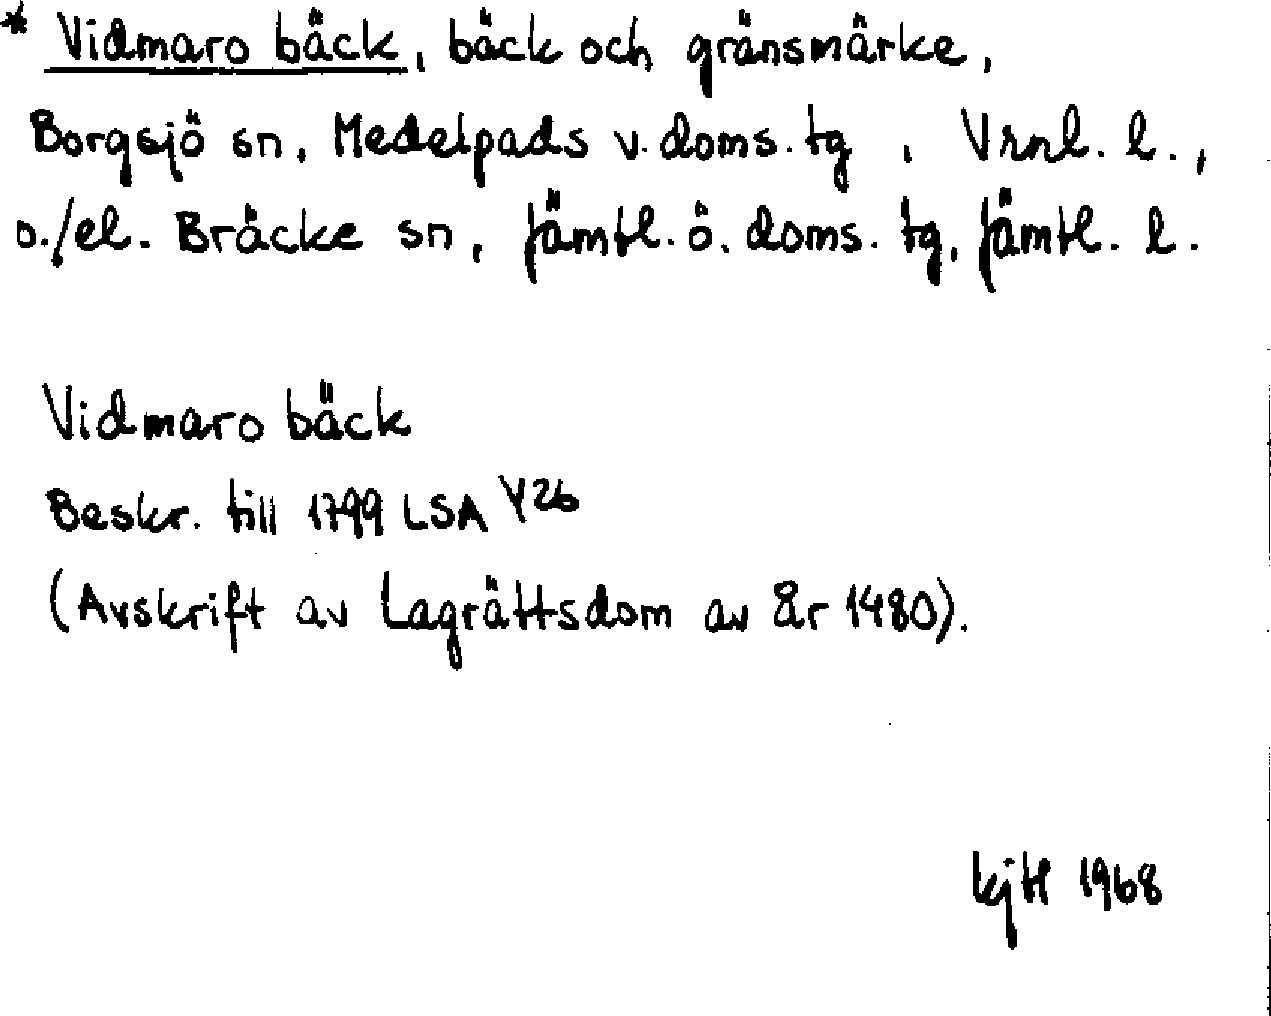 * Vidmaro bäck, bäck och gränsmärke,
Borgsjö sn, Medelpads v. doms. tg, Vrnl. l.,
o./el. Bräcke sn, Jämtl. ö. doms. tg, Jämtl. l.
Vidmaro bäck
Beskr. till 1799 LSA Y26
(Avskrift av Lagrättsdom av år 1480).
1968